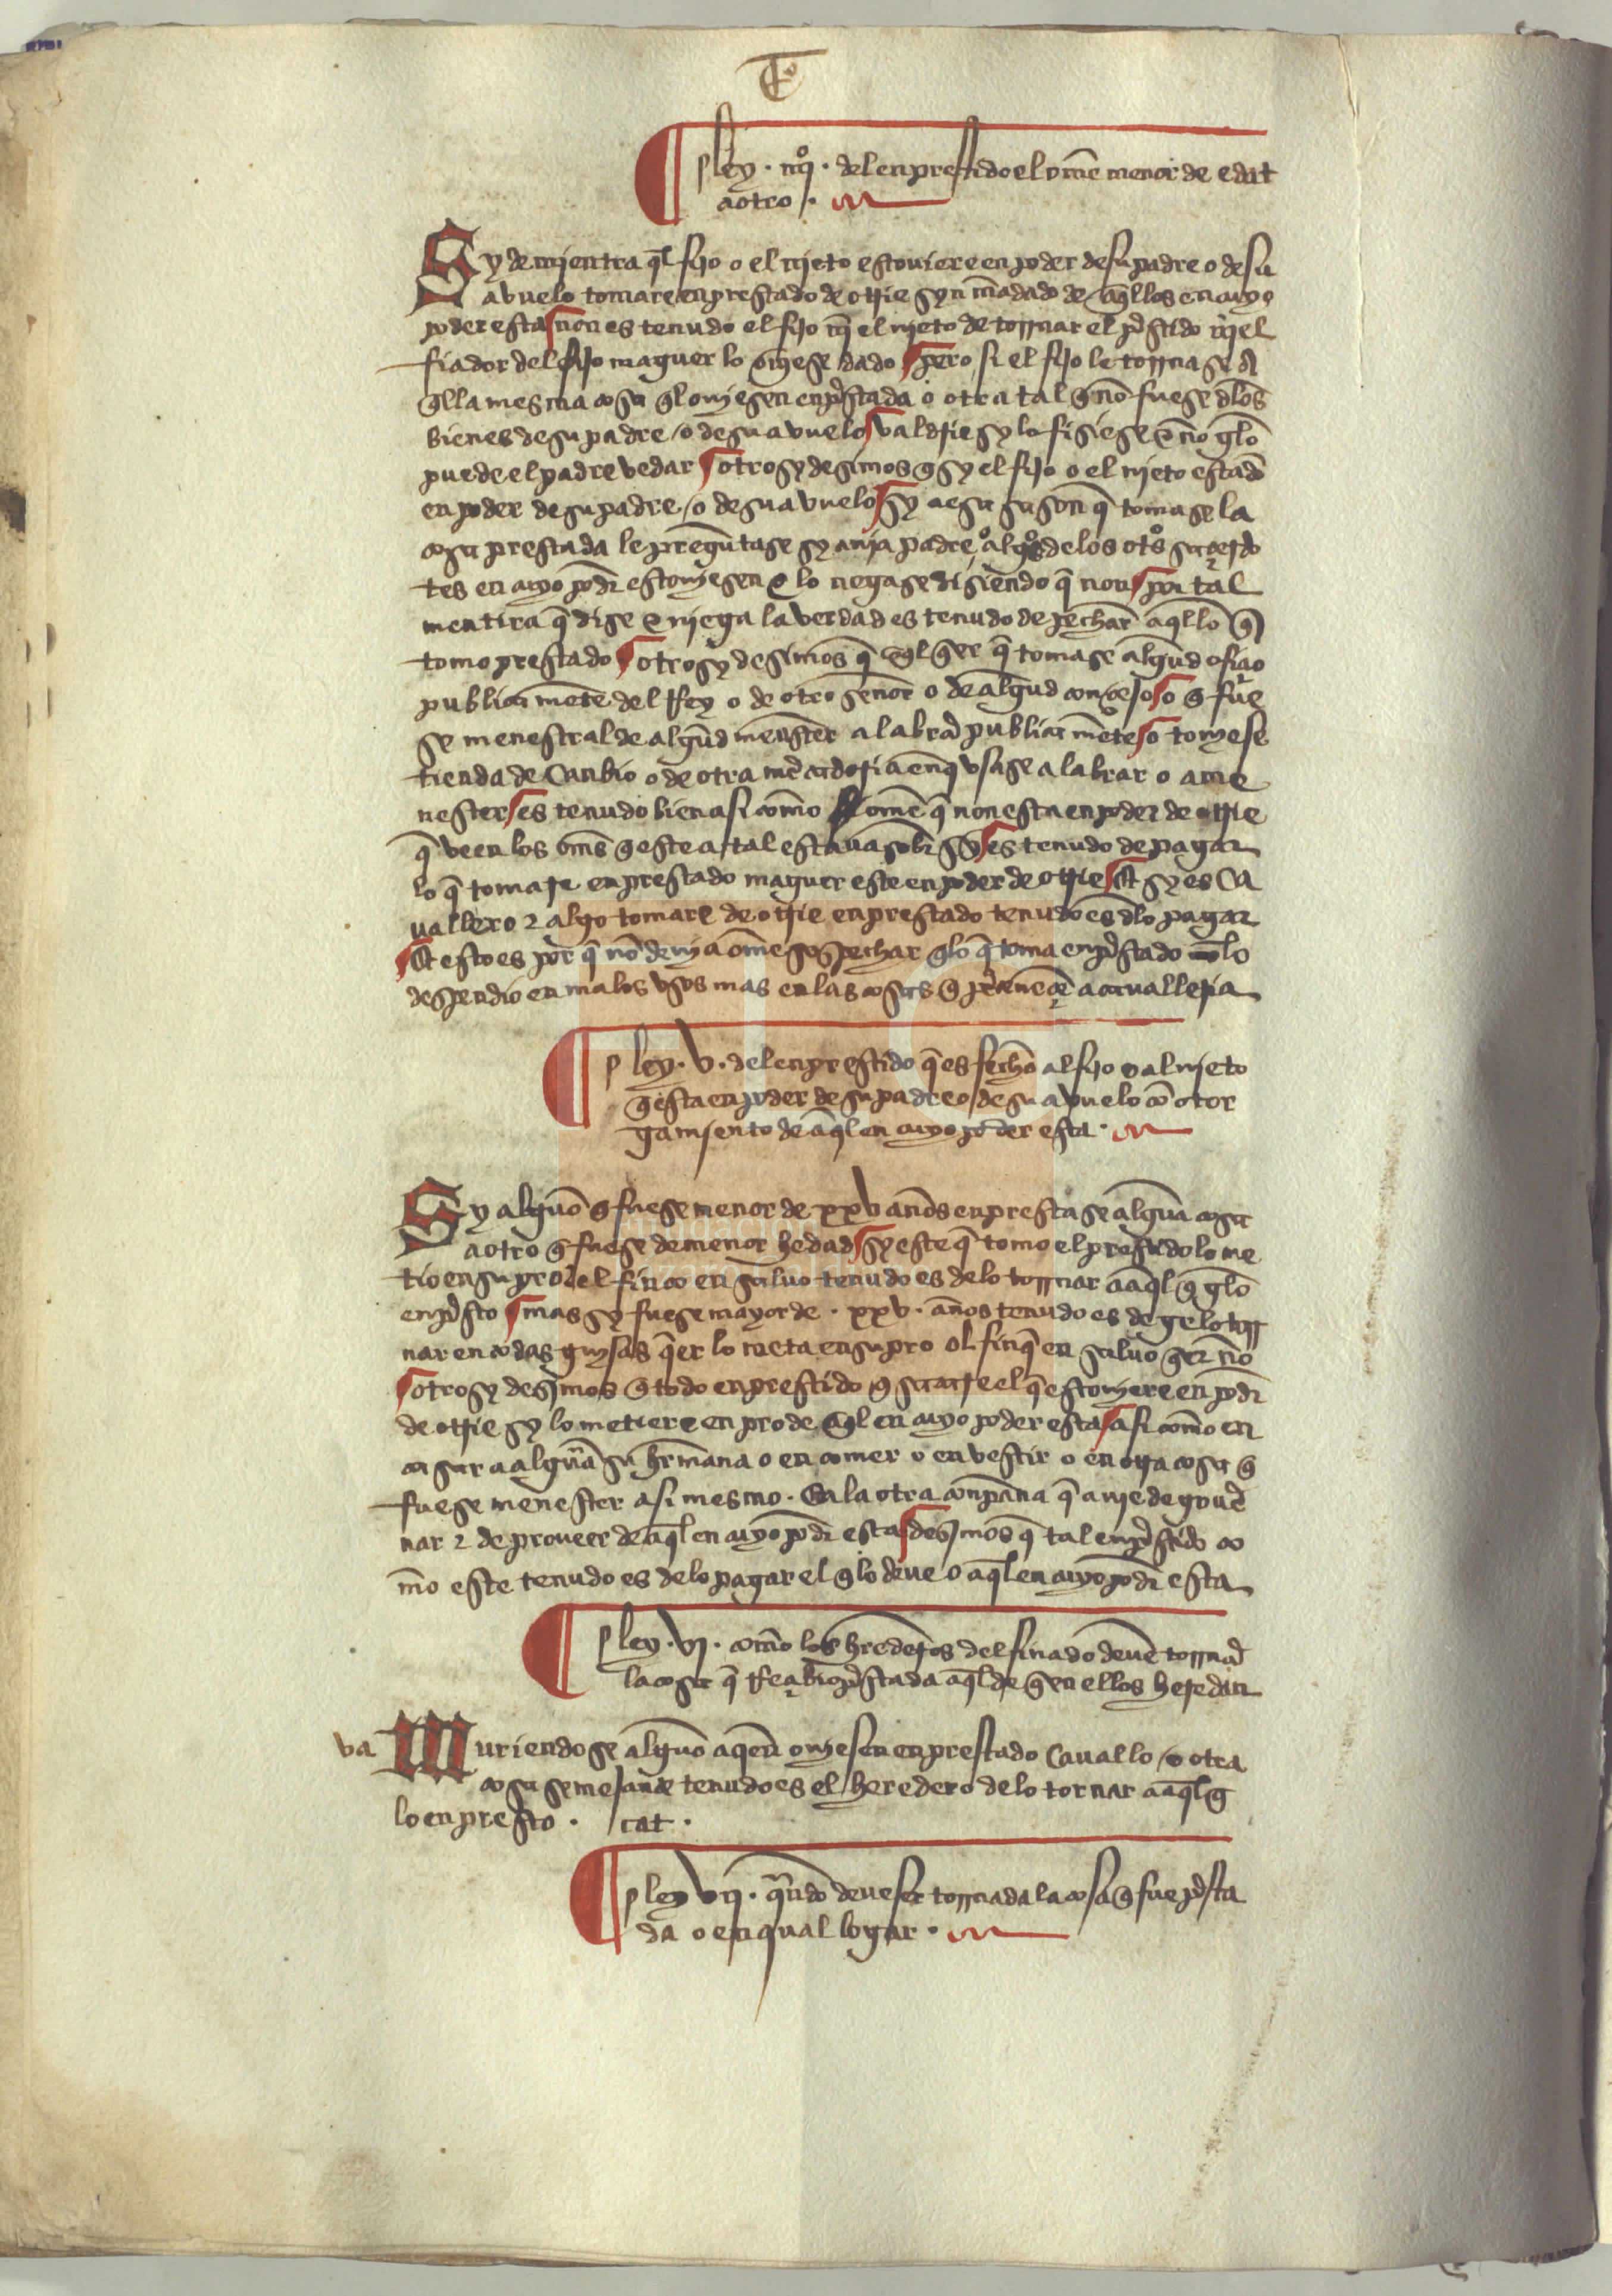 ley · iiijº · del enprestido el ome menor de edat
a otro ·
Sy de mientra ql fijo o el nieto estouiere en poder de su padre o de su
avuelo tomare enprestado de otrie syn mãdado de aqllos en cuyo
poder esta non es tenudo el fijo nj el nieto de tornar el prestido njn el
fiador del fijo maguer lo oujese dado pero si el fijo le tornase
qlla mesma cosa ql oujesen enprestada o otra tal q no fuese dlos
bienes de su padre o de su avuelo valdrie sy lo fisiese e no glo
puede el padre vedar otrosy desimos q sy el fijo o el nieto estado
en poder de su padre o de su avuelo sy a esa sason q tomase la
cosa prestada le preguntase sy auja padre o algo de los otos
tes en cuyo poder estoujesen e lo negase disiendo q non por tal
mentira q dise e njega la verdad es tenudo de pechar aqllo q
tomo prestado otrosy desimos q ql qer q tomase algund ofiçio
publica mete del Rey o de otro señor o de algund conçejo o q fue
se menestral de algund menester a labrar publica mete o toujese
tienda de Canbio o de otra mercaderia en q vsase a labrar o a me
nester es tenudo bien asi como ome q non esta en poder de otrie
q veen los oms q este a tal estaua sobre sy es tenudo de pagar
lo q tomare enprestado maguer este en poder de otrie Et sy es Ca
uallero e algo tomare de otrie enprestado tenudo es dlo pagar
Et esto es por q no deuja ome sospechar qlo q toma enprestado lo
despendio en malos vsos mas en las cosas q pertenecen a caualleria
ley · v · del enprestido q es fecho al fijo o al njeto
q esta en poder de su padre o de su avuelo co otor
gamjento de aql en cuyo poder esta ·
Sy alguo q fuese menor de xxv anos enprestase alguna cosa
a otro q fuese de menor hedad sy este q tomo el prestido lo me
tio en su pro el finco en saluo tenudo es delo tornar a aql q glo
enpresto mas sy fuese mayor de · xxv · años tenudo es de gelo tor
nar en todas guysas qer lo meta en su pro ol finq en saluo qer no
otrosy desimos q todo enprestido q sacare el q estoujere en poder
de otrie sy lo metiere en pro de aql en cuyo poder esta asi como en
casar a alguna su hrmana o en comer o en vestir o en otra cosa q
fuese menester asi mesmo · En la otra conpana q a uje de gouer
nar e de proueer de aql en cuyo poder esta desimos q tal enprestido co
mo este tenudo es delo pagar el qlo deue o aql en cuyo poder esta
ley · vj · como los herederos del finado deue tornar
la cosa q Reçibio prestada aql de qen ellos heredan
va
Muriendo se alguo a qen oujesen enprestado Cauallo o otra
cosa semejante tenudo es el heredero delo tornar a aql q
lo enpresto · cat ·
ley vij · quando deue ser tornada la cosa q fue presta
da o en qual logar ·